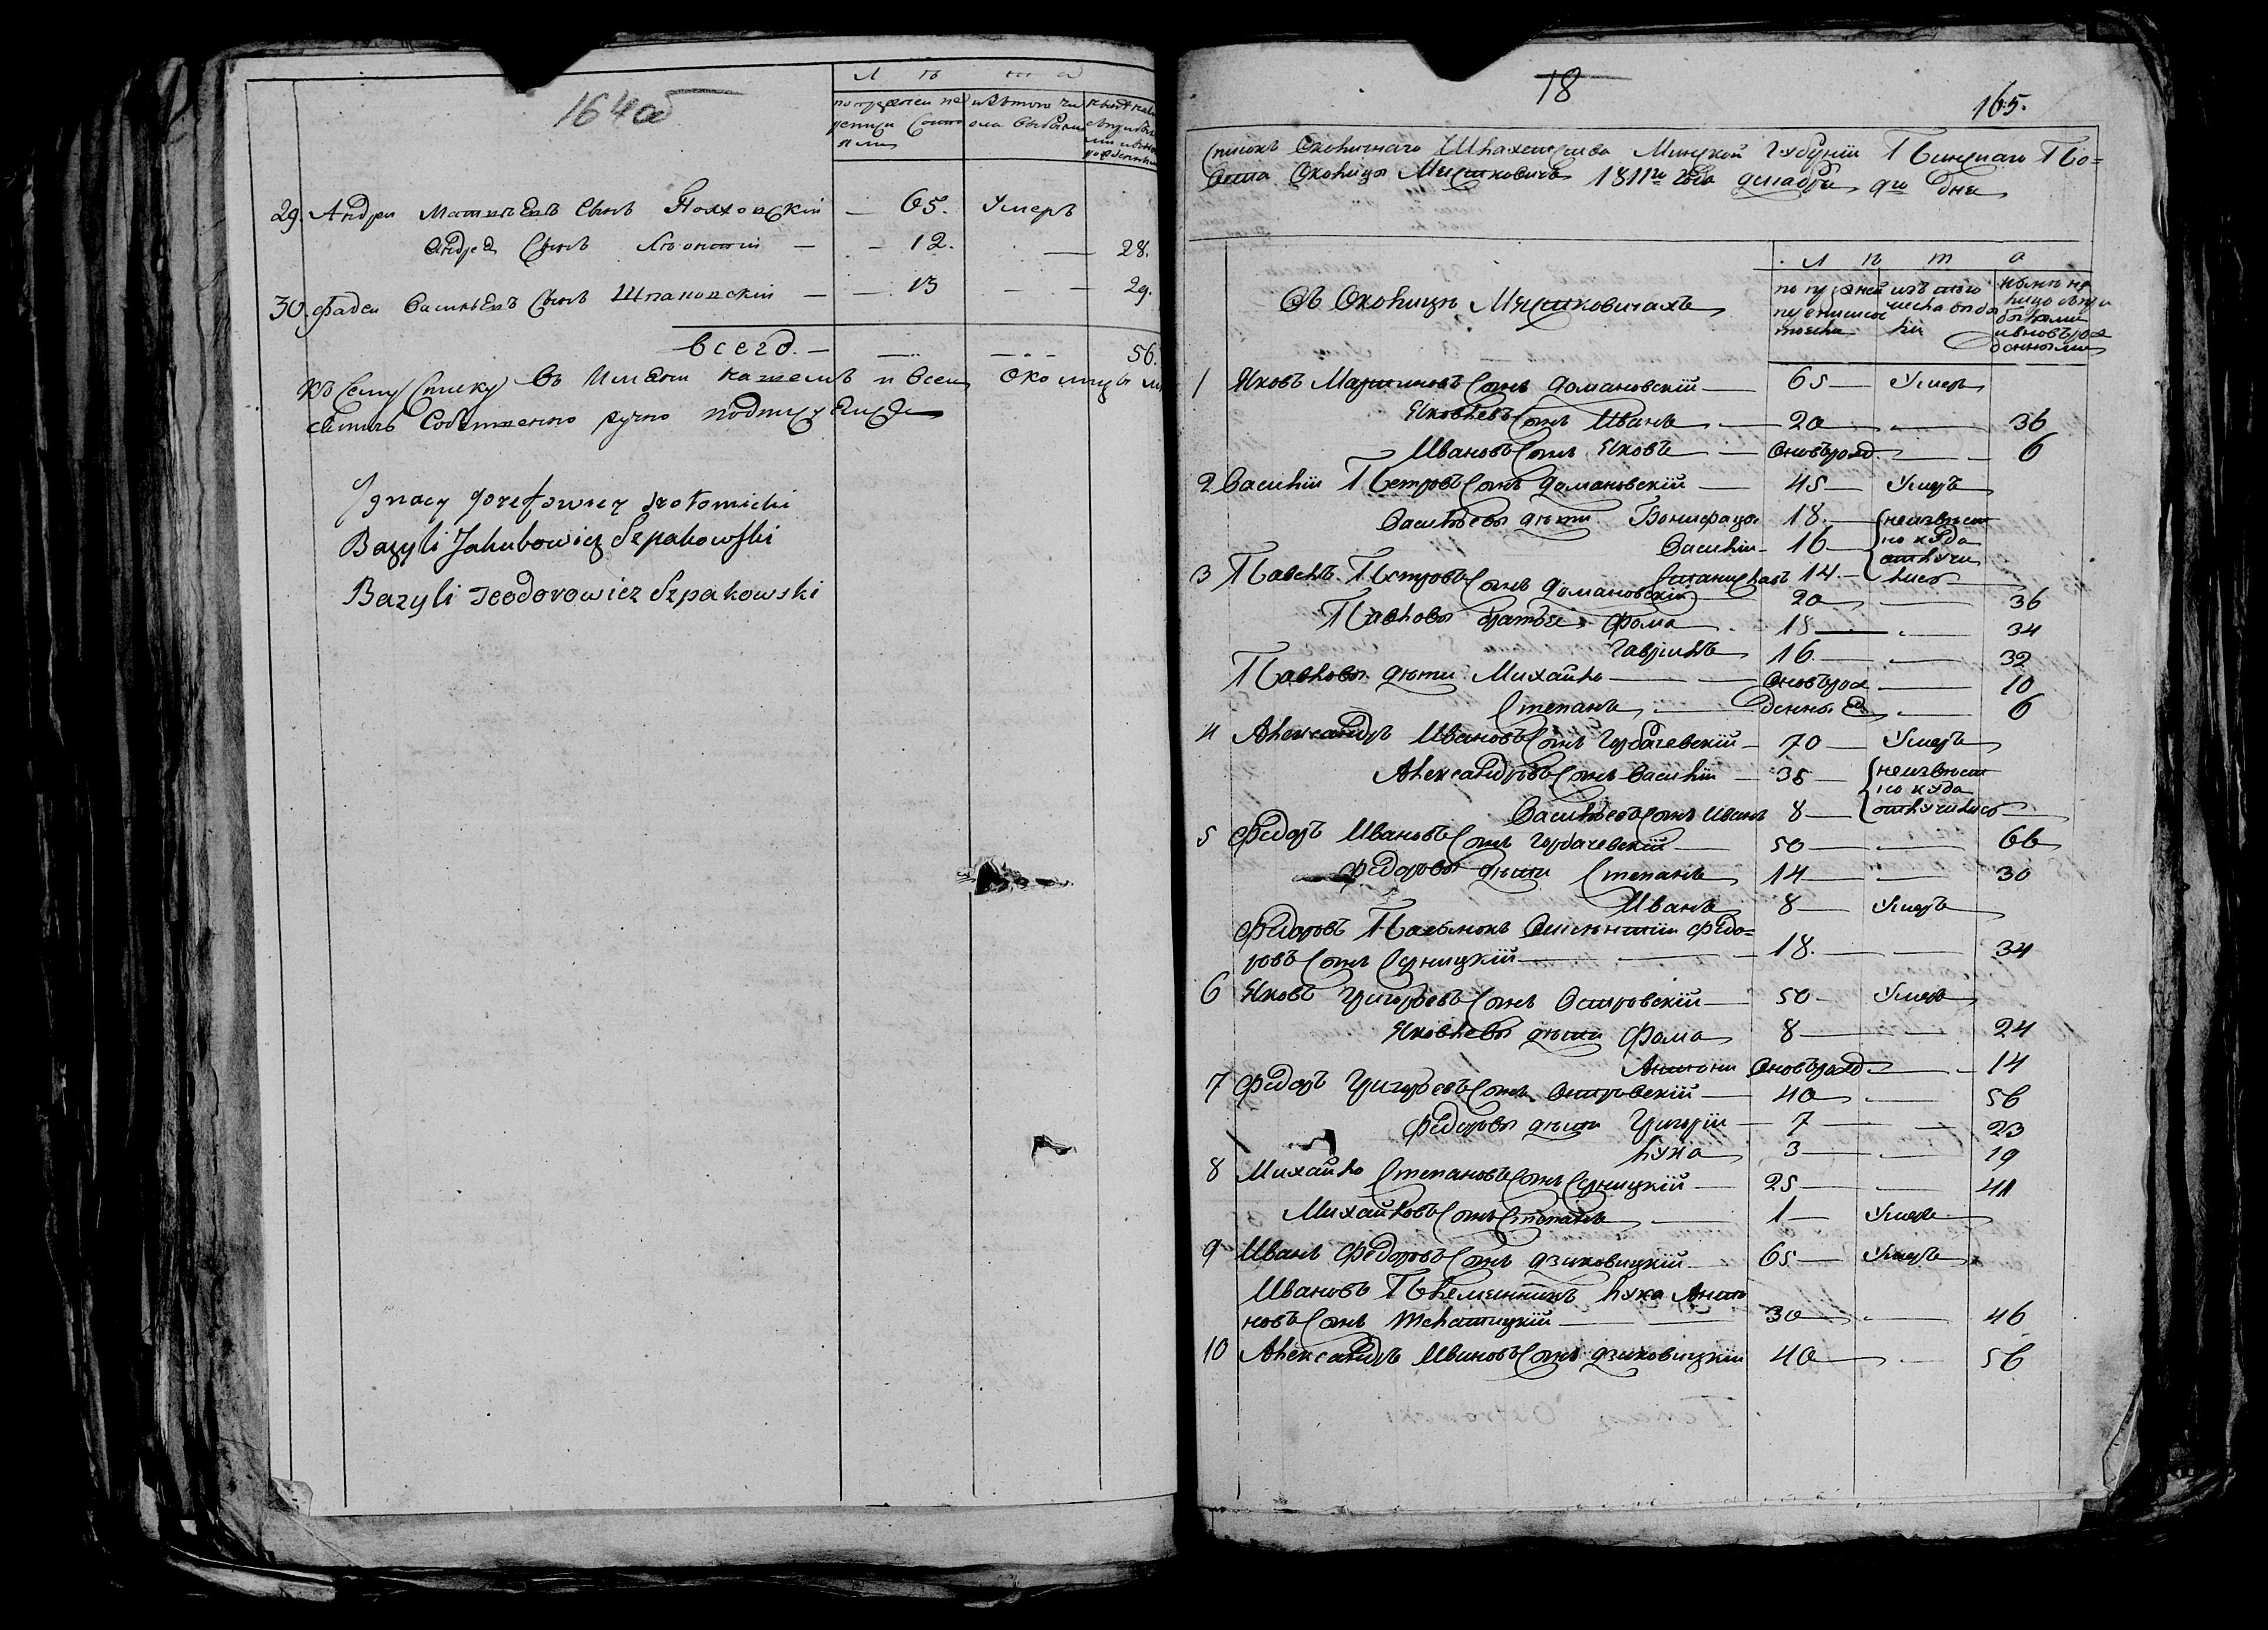 164об
Л ѣ т а
29. Андрей Матвѣевъ сынъ Полховскій — 65. Умеръ
Андрея сынъ Леонтій — 12. — 28.
30. Фадей Васильевъ сынъ Шпаковскій — 13 — 29.
Всего — 56.
Къ сему списку въ имени нашемъ и всей околицы
собственно ручно подписуемся
Ignacy Jozefowicz
Bazyli Jakubowicz Szpakowski
Bazyli Teodorowicz Szpakowski
18
165.
Списокъ околичнаго Шляхетства Минской губерніи Пинскаго По=
вѣта околицы Местковичъ 1811го года декабря 9го дня
Въ Околицѣ Местковичахъ
Л ѣ т а
1 Яковъ Мартиновъ сынъ Домановскій — 65 — Умеръ
Яковлевъ сынъ Иванъ — 20 — 36
Ивановъ сынъ Яковъ — вноврожд. — 6
2 Василій Петровъ сынъ Домановскій — 45 — Умеръ
Васильевы дѣти Бонифацы 18. — неизвѣст
Василій — 16 — но куда
Станиславъ 14. — отлучи
лись
3 Павелъ Петровъ сынъ Домановскій 20 — 36
Павловы братья Фома — 18 — 34
Гаврилъ 16. — 32
Павловы дѣти Михайло — вноврож — 10
Степанъ — денные — 6
4 Александръ Ивановъ сынъ Горбачевскій — 70 — Умеръ
Александровъ сынъ Василій — 38 — неизвѣст
но куда
Васильевъ сынъ Иванъ 8 — отлучились
5 Федоръ Ивановъ сынъ Горбачевскій — 50 — 66
Федоровы дѣти Степанъ 14 — 30
Иванъ 8 — Умеръ
Федоровъ Пасынокъ Викентій Федо=
ровъ сынъ Серницкій — 18. — 34
6 Яковъ Григорьевъ сынъ Островскій — 50 — Умеръ
Яковлевы дѣти Фома 8 — 24
Антони вноврожд — 14
7 Федоръ Григорьевъ сынъ Островскій — 40 — 56
Федоровы дѣти Григорій — 7 — 23
Лука 3 — 19
8 Михайло Степановъ сынъ Серницкій — 25 — 41
Михайловъ сынъ Степанъ — 1 — Умеръ
9 Иванъ Федоровъ сынъ Дзиковицкій — 65 — Умеръ
Ивановъ Племянникъ Лука Анто
новъ сынъ Телатицкій — 30 — 46
10 Александръ Ивановъ сынъ Дзиковицкій 40 — 56